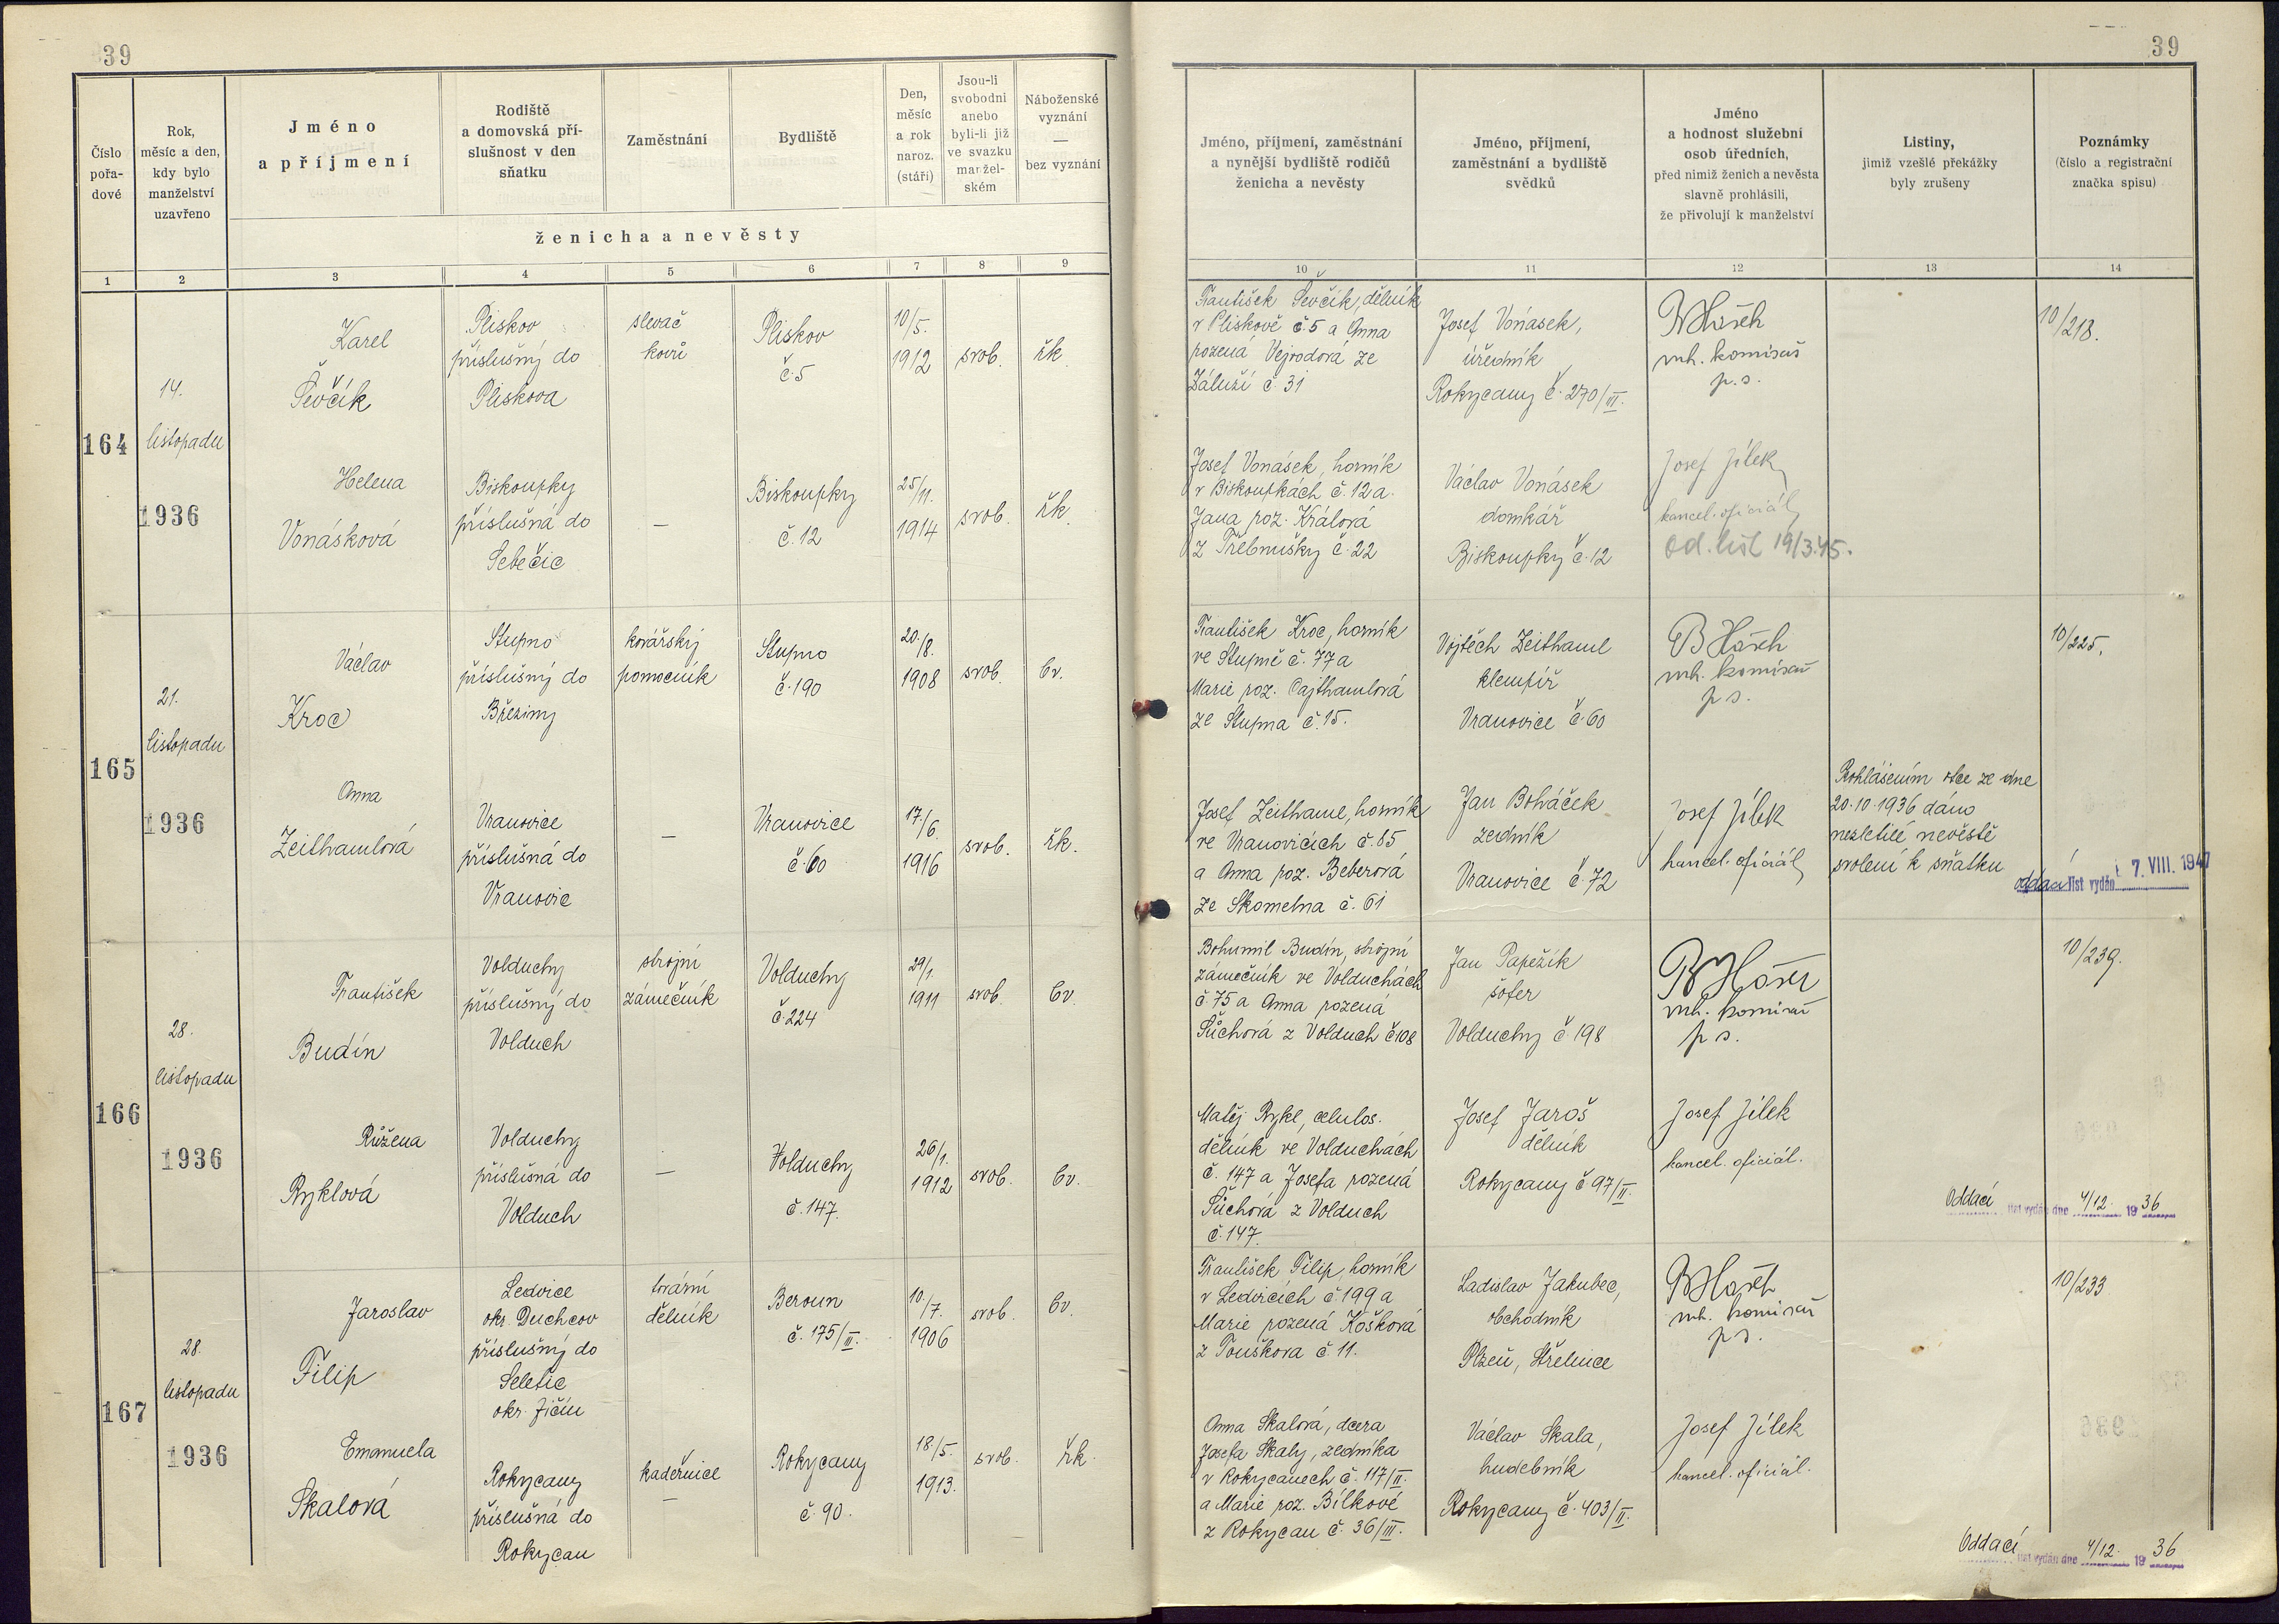 39
39
Číslo pořa-dové
Rok, měsíc a den, kdy bylo manželství uzavřeno
Jméno a příjmení
Rodiště a domovská pří-slušnost v den sňatku
Zaměstnání
Bydliště
Den, měsíc a rok naroz. (stáří)
Jsou-li svobodni anebo byli-li již ve svazku manžel-ském
Náboženské vyznání — bez vyznání
ženicha a nevěsty
Jméno, příjmení, zaměstnání a nynější bydliště rodičů ženicha a nevěsty
Jméno, příjmení, zaměstnání a bydliště svědků
Jméno a hodnost služební osob úředních, před nimiž ženich a nevěsta slavně prohlásili, že přivolují k manželství
Listiny, jimiž vzešlé překážky byly zrušeny
Poznámky (číslo a registrační značka spisu)
1 2 3 4 5 6 7 8 9 10 11 12 13 14
164
14.
listopadu
1936
Karel
Ševčík
Pliskov
příslušný do
Pliskova
slevač
kovů
Pliskov
č. 5
10/5.
1912
svob.
řk.
František Ševčík, dělník
v Pliskově č. 5 a Anna
rozená Vejvodová ze
Záluží č. 31
Josef Voňasek,
úředník
Rokycany č. 270/III.
mh. komisař
p. s.
10/218.
Helena
Vonásková
Biskoupky
příslušná do
Sebečic
—
Biskoupky
č. 12
25/11.
1914
svob.
řk.
Josef Vonásek, horník
v Biskoupkách č. 12 a
Jana roz. Králová
z Třebnušky č. 22
Václav Vonásek
domkář
Biskoupky č. 12
Josef Jílek
kancel. oficiál
od. list 19/3.45.
165
21.
listopadu
1936
Václav
Kroc
Stupno
příslušný do
Březiny
kovářský
pomocník
Stupno
č. 190
20./8.
1908
svob.
bv.
František Kroc, horník
ve Stupně č. 77 a
Marie roz. Cajthamlová
ze Stupna č. 15.
Vojtěch Zeithaml
klempíř
Vranovice č. 60
mh. komisař
p. s.
10/225.
Anna
Zeithamlová
Vranovice
příslušná do
Vranovic
—
Vranovice
č. 60
17./6.
1916
svob.
řk.
Josef Zeithaml, horník
ve Vranovicích č. 85
a Anna roz. Beberová
ze Skomelna č. 61
Jan Boháček
zedník
Vranovice č. 72
Josef Jílek
kancel. oficiál
Prohlášením otce ze dne
20.10.1936 dáno
nezletilé nevěstě
svolení k sňatku
oddací list vydán 7. VIII. 1947
166
28.
listopadu
1936
František
Budín
Volduchy
příslušný do
Volduch
strojní
zámečník
Volduchy
č. 224
29/1.
1911
svob.
bv.
Bohumil Budín, strojní
zámečník ve Volduchách
č. 75 a Anna rozená
Sůchová z Volduch č. 108
Jan Papežík
šofer
Volduchy č. 198
mh. komisař
p. s.
10/239.
Růžena
Ryklová
Volduchy
příslušná do
Volduch
—
Volduchy
č. 147.
26/1.
1912
svob.
bv.
Matěj Rykl, celulos.
dělník ve Volduchách
č. 147 a Josefa rozená
Sůchová z Volduch
č. 147.
Josef Jaroš
dělník
Rokycany č. 97/II.
Josef Jílek
kancel. oficiál.
Oddací list vydán dne 4/12. 1936
167
28.
listopadu
1936
Jaroslav
Filip
Ledvice
okr. Duchcov
příslušný do
Seletic
okr. Jičín
tovární
dělník
Beroun
č. 175/II.
10./7.
1906
svob.
bv.
František Filip, horník
v Ledvicích č. 199 a
Marie rozená Košková
z Touškova č. 11.
Ladislav Jakubec,
obchodník
Plzeň, Střelnice
mh. komisař
p. s.
10/233
Emanuela
Skalová
Rokycany
příslušná do
Rokycan
kadeřnice
—
Rokycany
č. 90.
18./5.
1913.
svob.
řk.
Anna Skalová, dcera
Josefa Skaly, zedníka
v Rokycanech č. 117/II.
a Marie roz. Bílkové
z Rokycan č. 36/III.
Václav Skala,
hudebník
Rokycany č. 403/II.
Josef Jílek
kancel. oficiál.
Oddací list vydán dne 4/12. 1936